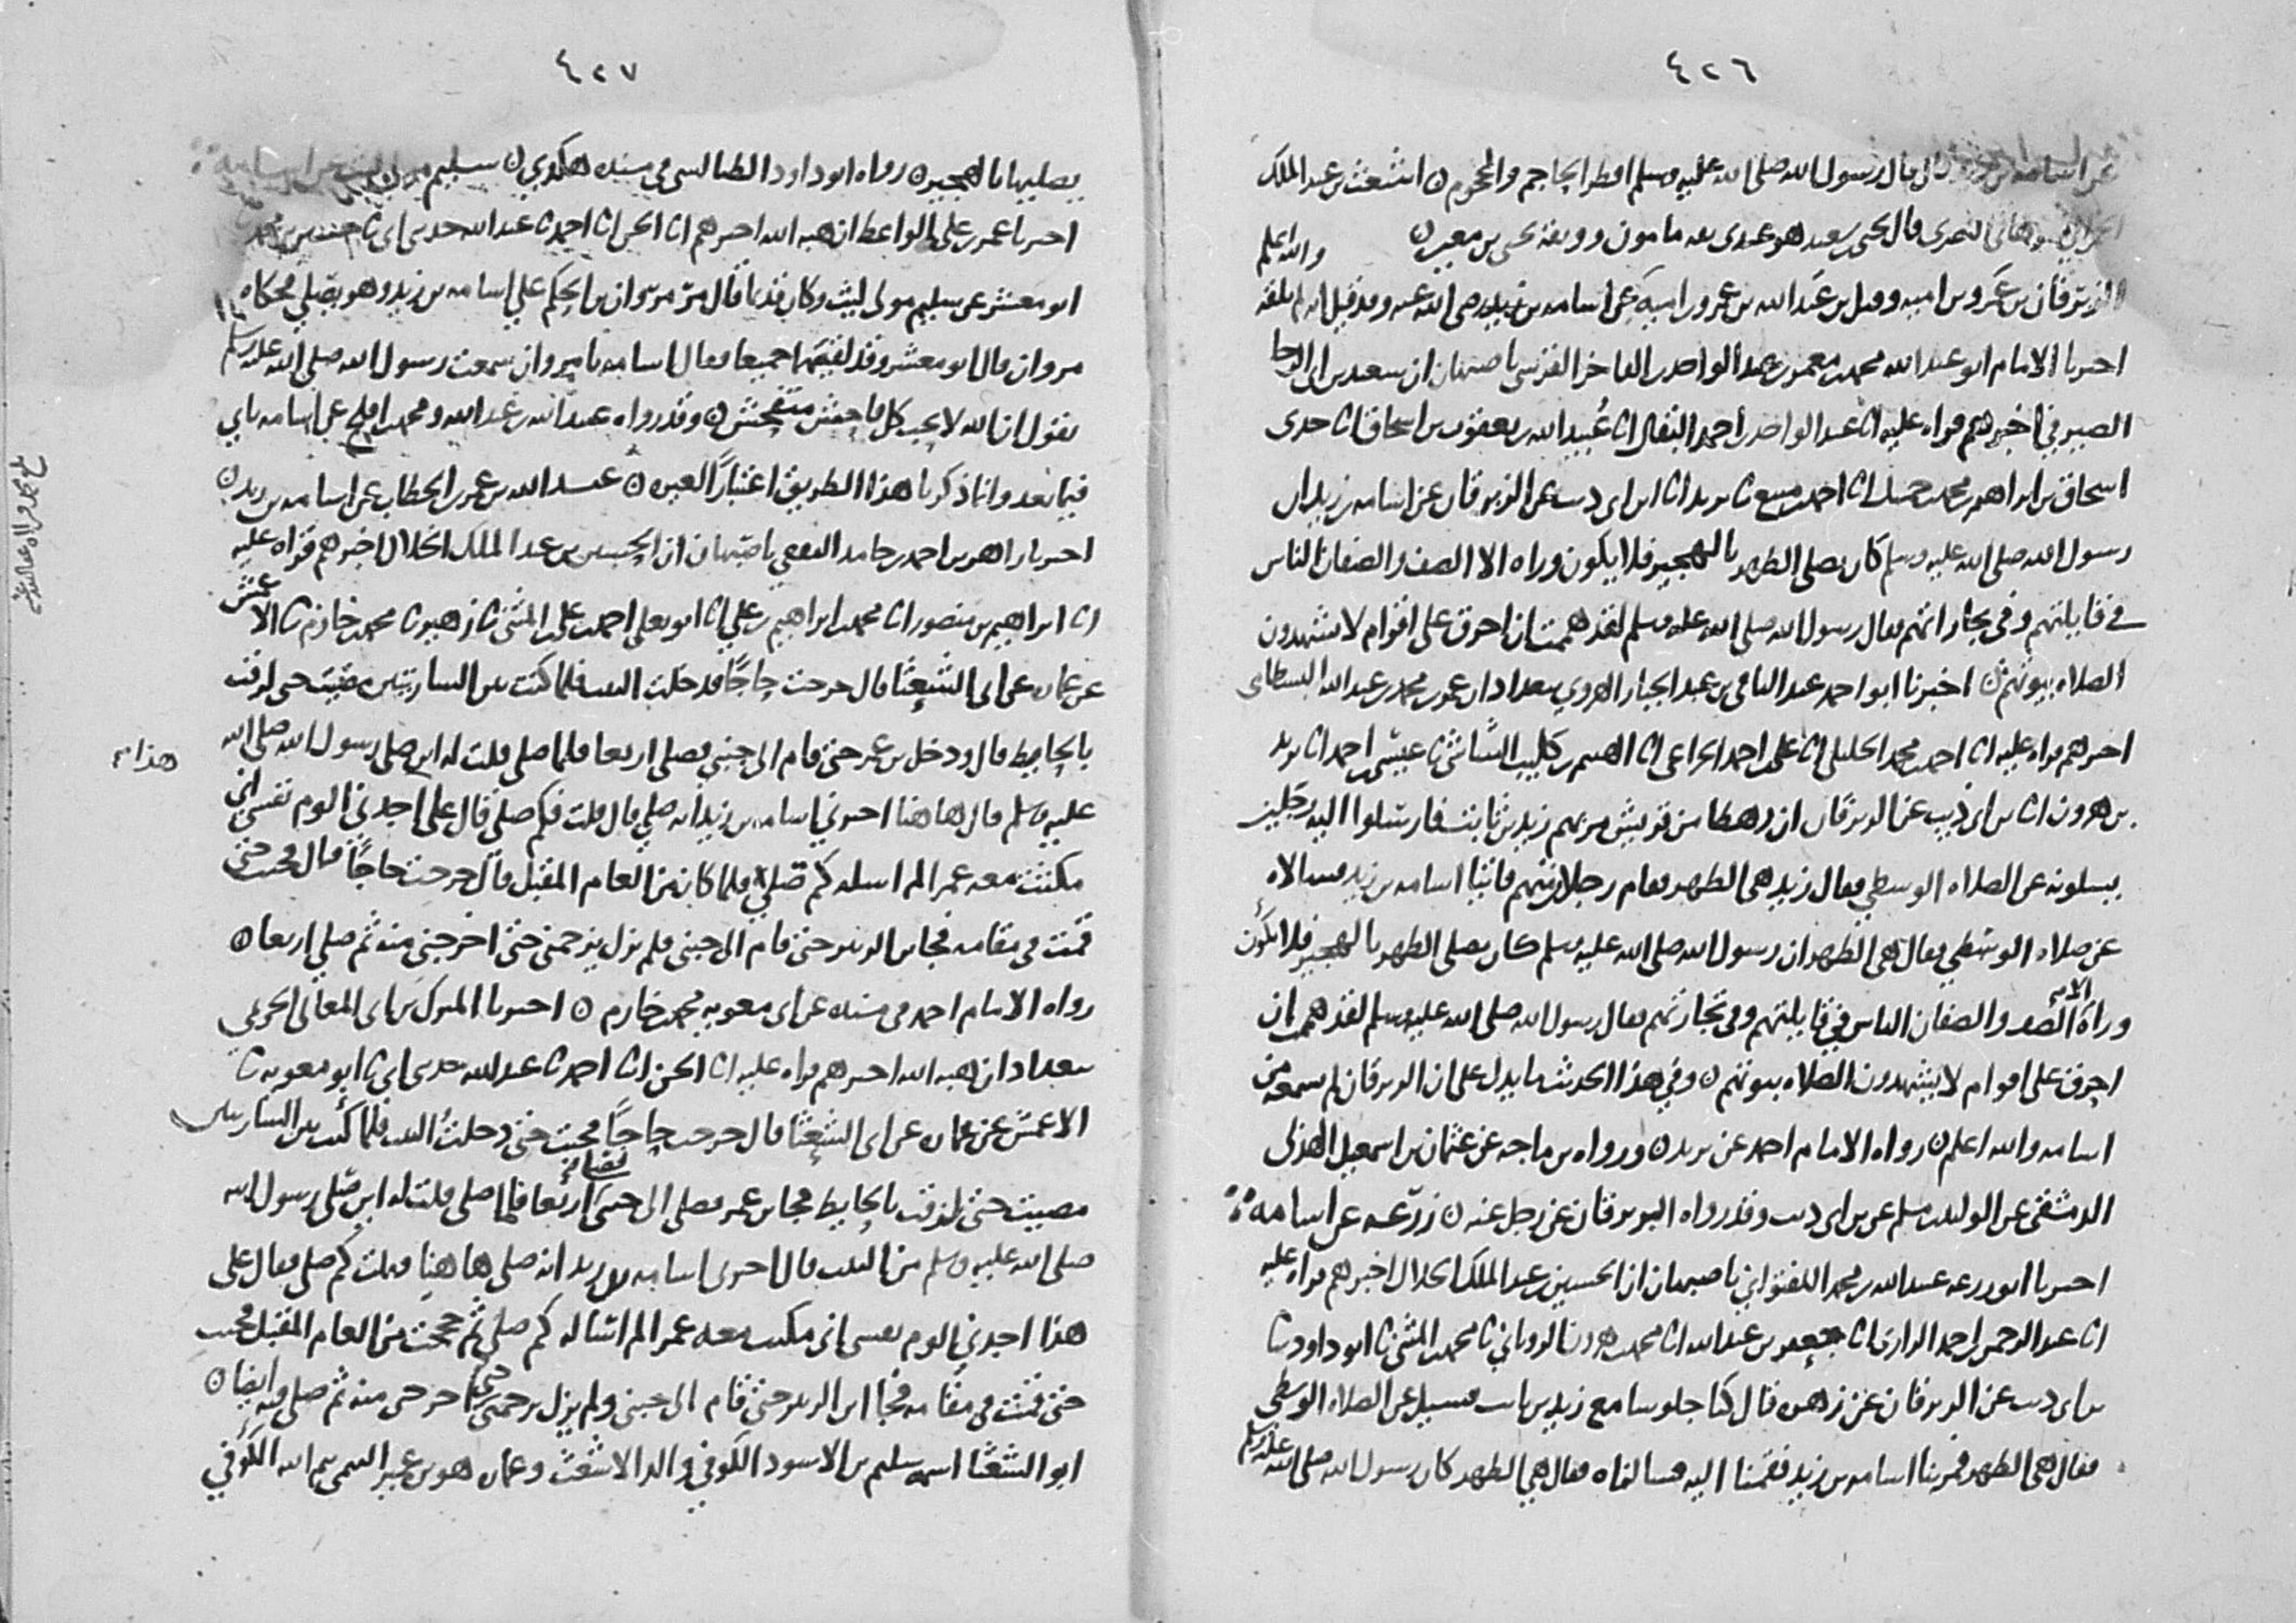 ٤٢٦
عن اسامه بن زيد قال قال رسول الله صلى الله عليه وسلم افطر الحاجم والمحجوم ن اشعث بن عبد الملك
قال يحيى بن سعيد هو عندى ثقه مامون ووثقه يحيى بن معين ن
والله اعلم
الزبرقان بن عمرو بن اميه وقيل بن عبد الله بن عمرو بن اميه عن اسامه بن زيد رضى الله عنه وقد قيل انه لم يلقه
اخبرنا الامام ابو عبد الله محمد بن معمر بن عبد الواحد بن الفاخر القرشي باصبهان ان سعيد بن ابى الرجا
الصيرفي اخبرهم قراه عليه انا عبد الواحد بن احمد البقال انا عبيد الله بن يعقوب بن اسحاق انا جدى
اسحاق بن ابراهيم بن محمد بن جميل انا احمد بن منيع ثنا يزيد انا ابن ابى ذيب عن الزبرقان عن اسامه بن زيد ان
رسول الله صلى الله عليه وسلم كان يصلى الظهر بالهجير فلا يكون وراه الا الصف والصفان الناس
في قايلتهم وفى تجارتهم فقال رسول الله صلى الله عليه وسلم لقد هممت ان احرق على اقوام لا يشهدون
الصلاه بيوتهم ن اخبرنا ابو احمد عبد الباقى بن عبد الجبار الهروي ببغداد ان عمر بن محمد بن عبد الله البسطامى
اخبرهم قراه عليه انا احمد بن محمد الخليلى انا على بن احمد الخزاعى انا الهيثم بن كليب الشاشى ثنا عيسى بن احمد انا يزيد
بن هرون انا بن ابى ذيب عن الزبرقان ان رهطا من قريش مر بهم زيد بن ثابت فارسلوا اليه رجلين
يسلونه عن الصلاه الوسطى فقال زيد هى الظهر فقام رجلان منهم فاتيا اسامه بن زيد فسالاه
عن صلاه الوسطى فقال هى الظهر ان رسول الله صلى الله عليه وسلم كان يصلى الظهر بالهجير فلا يكون
وراه الا الصف والصفان الناس في قايلتهم وفى تجارتهم فقال رسول الله صلى الله عليه وسلم لقد هممت ان
احرق على اقوام لا يشهدون الصلاه بيوتهم ن وفي هذا الحديث ما يدل على ان الزبرقان لم يسمعه من
اسامه والله اعلم ن رواه الامام احمد عن يزيد ن ورواه بن ماجه عن عثمان بن اسمعيل الهذلى
الدمشقى عن الوليد بن مسلم عن بن ابى ذيب وقد رواه الزبرقان عن رجل عنه ن زرعه عن اسامه
اخبرنا ابو زرعه عبد الله بن محمد اللفتواني باصبهان ان الحسين بن عبد الملك الخلال اخبرهم قراه عليه
انا عبد الرحمن بن احمد الرازى انا جعفر بن عبد الله انا محمد بن هرون الروياني ثنا محمد بن المثنى ثنا ابو داود ثنا
بن ابى ذيب عن الزبرقان عن زهره قال كنا جلوسا مع زيد بن ثابت فسيل عن الصلاه الوسطى
فقال هى الظهر فمر بنا اسامه بن زيد فقمنا اليه فسالناه فقال هى الظهر كان رسول الله صلى الله عليه وسلم
٤٢٧
يصليها بالهجير ن رواه ابو داود الطيالسى فى مسنده هكذي ن سليم مولى ليث عن اسامه
اخبرنا عمر بن على الواعظ ان هبه الله اخبرهم انا الحسن انا احمد ثنا عبد الله حدثنى ابى ثنا حسين بن محمد ثنا
ابو معشر عن سليم مولى ليث وكان قديما قال مر مروان بن الحكم على اسامه بن زيد وهو يصلي فحكاه
مروان قال ابو معشر وقد لقيهما جميعا فقال اسامه يا مروان سمعت رسول الله صلى الله عليه وسلم
يقول ان الله لا يحب كل فاحش متفحش ن وقد رواه عبيد الله بن عبد الله ومحمد بن افلح عن اسامه ياتي
فيما بعد وانما ذكرنا هذا الطريق اعتبارا لغيره ن عبد الله بن عمر بن الخطاب عن اسامه بن زيد ن
اخبرنا زاهر بن احمد بن حامد الثقفي باصبهان ان الحسين بن عبد الملك الخلال اخبرهم قراه عليه
انا ابراهيم بن منصور انا محمد بن ابراهيم بن علي انا ابو يعلى احمد بن على بن المثنى ثنا زهير ثنا محمد بن خازم ثنا الاعمش
عن عماره عن ابى الشعثا قال خرجت حاجا فدخلت البيت فلما كنت بين الساريتين مضيت حتى لزقت
بالحايط قال ودخل بن عمر حتى قام الى جنبى فصلى اربعا فلما صلى قلت له اين صلى رسول الله صلى الله
عليه وسلم قال هاهنا اخبرني اسامه بن زيد انه صلى قال قلت فكم صلى قال على هذا اجدني الوم نفسى انى
مكثت معه عمرا لم اساله كم صلى فلما كان من العام المقبل قال خرجت حاجا قال فجيت حتى
قمت فى مقامه فجا بن الزبير حتى قام الى جنبى فلم يزل يزحمنى حتى اخرجنى منه ثم صلى اربعا ن
رواه الامام احمد فى مسنده عن ابى معويه محمد بن خازم ن اخبرنا المبارك بن ابى المعالى الحريمي
ببغداد ان هبه الله اخبرهم قراه عليه انا الحسن انا احمد ثنا عبد الله حدثنى ابى ثنا ابو معويه ثنا
الاعمش عن عماره عن ابى الشعثا قال خرجت حاجا فجيت حتى دخلت البيت فلما كنت بين الساريتين
مضيت حتى لزقت بالحايط فجا بن عمر فصلى الى جنبى اربعا فلما صلى قلت له اين صلى رسول الله
صلى الله عليه وسلم من البيت قال اخبرنى اسامه بن زيد انه صلى هاهنا فقلت كم صلى فقال على
هذا اجدني الوم نفسى انى مكثت معه عمرا لم اساله كم صلى ثم حججت من العام المقبل فجيت
حتى قمت فى مقامه فجا ابن الزبير حتى قام الى جنبى ولم يزل يزحمنى حتى اخرجنى منه ثم صلى فيه ايضا ن
ابو الشعثا اسمه سليم بن الاسود الكوفي والد الاشعث وعماره هو بن عمير التيمى تيم الله الكوفي